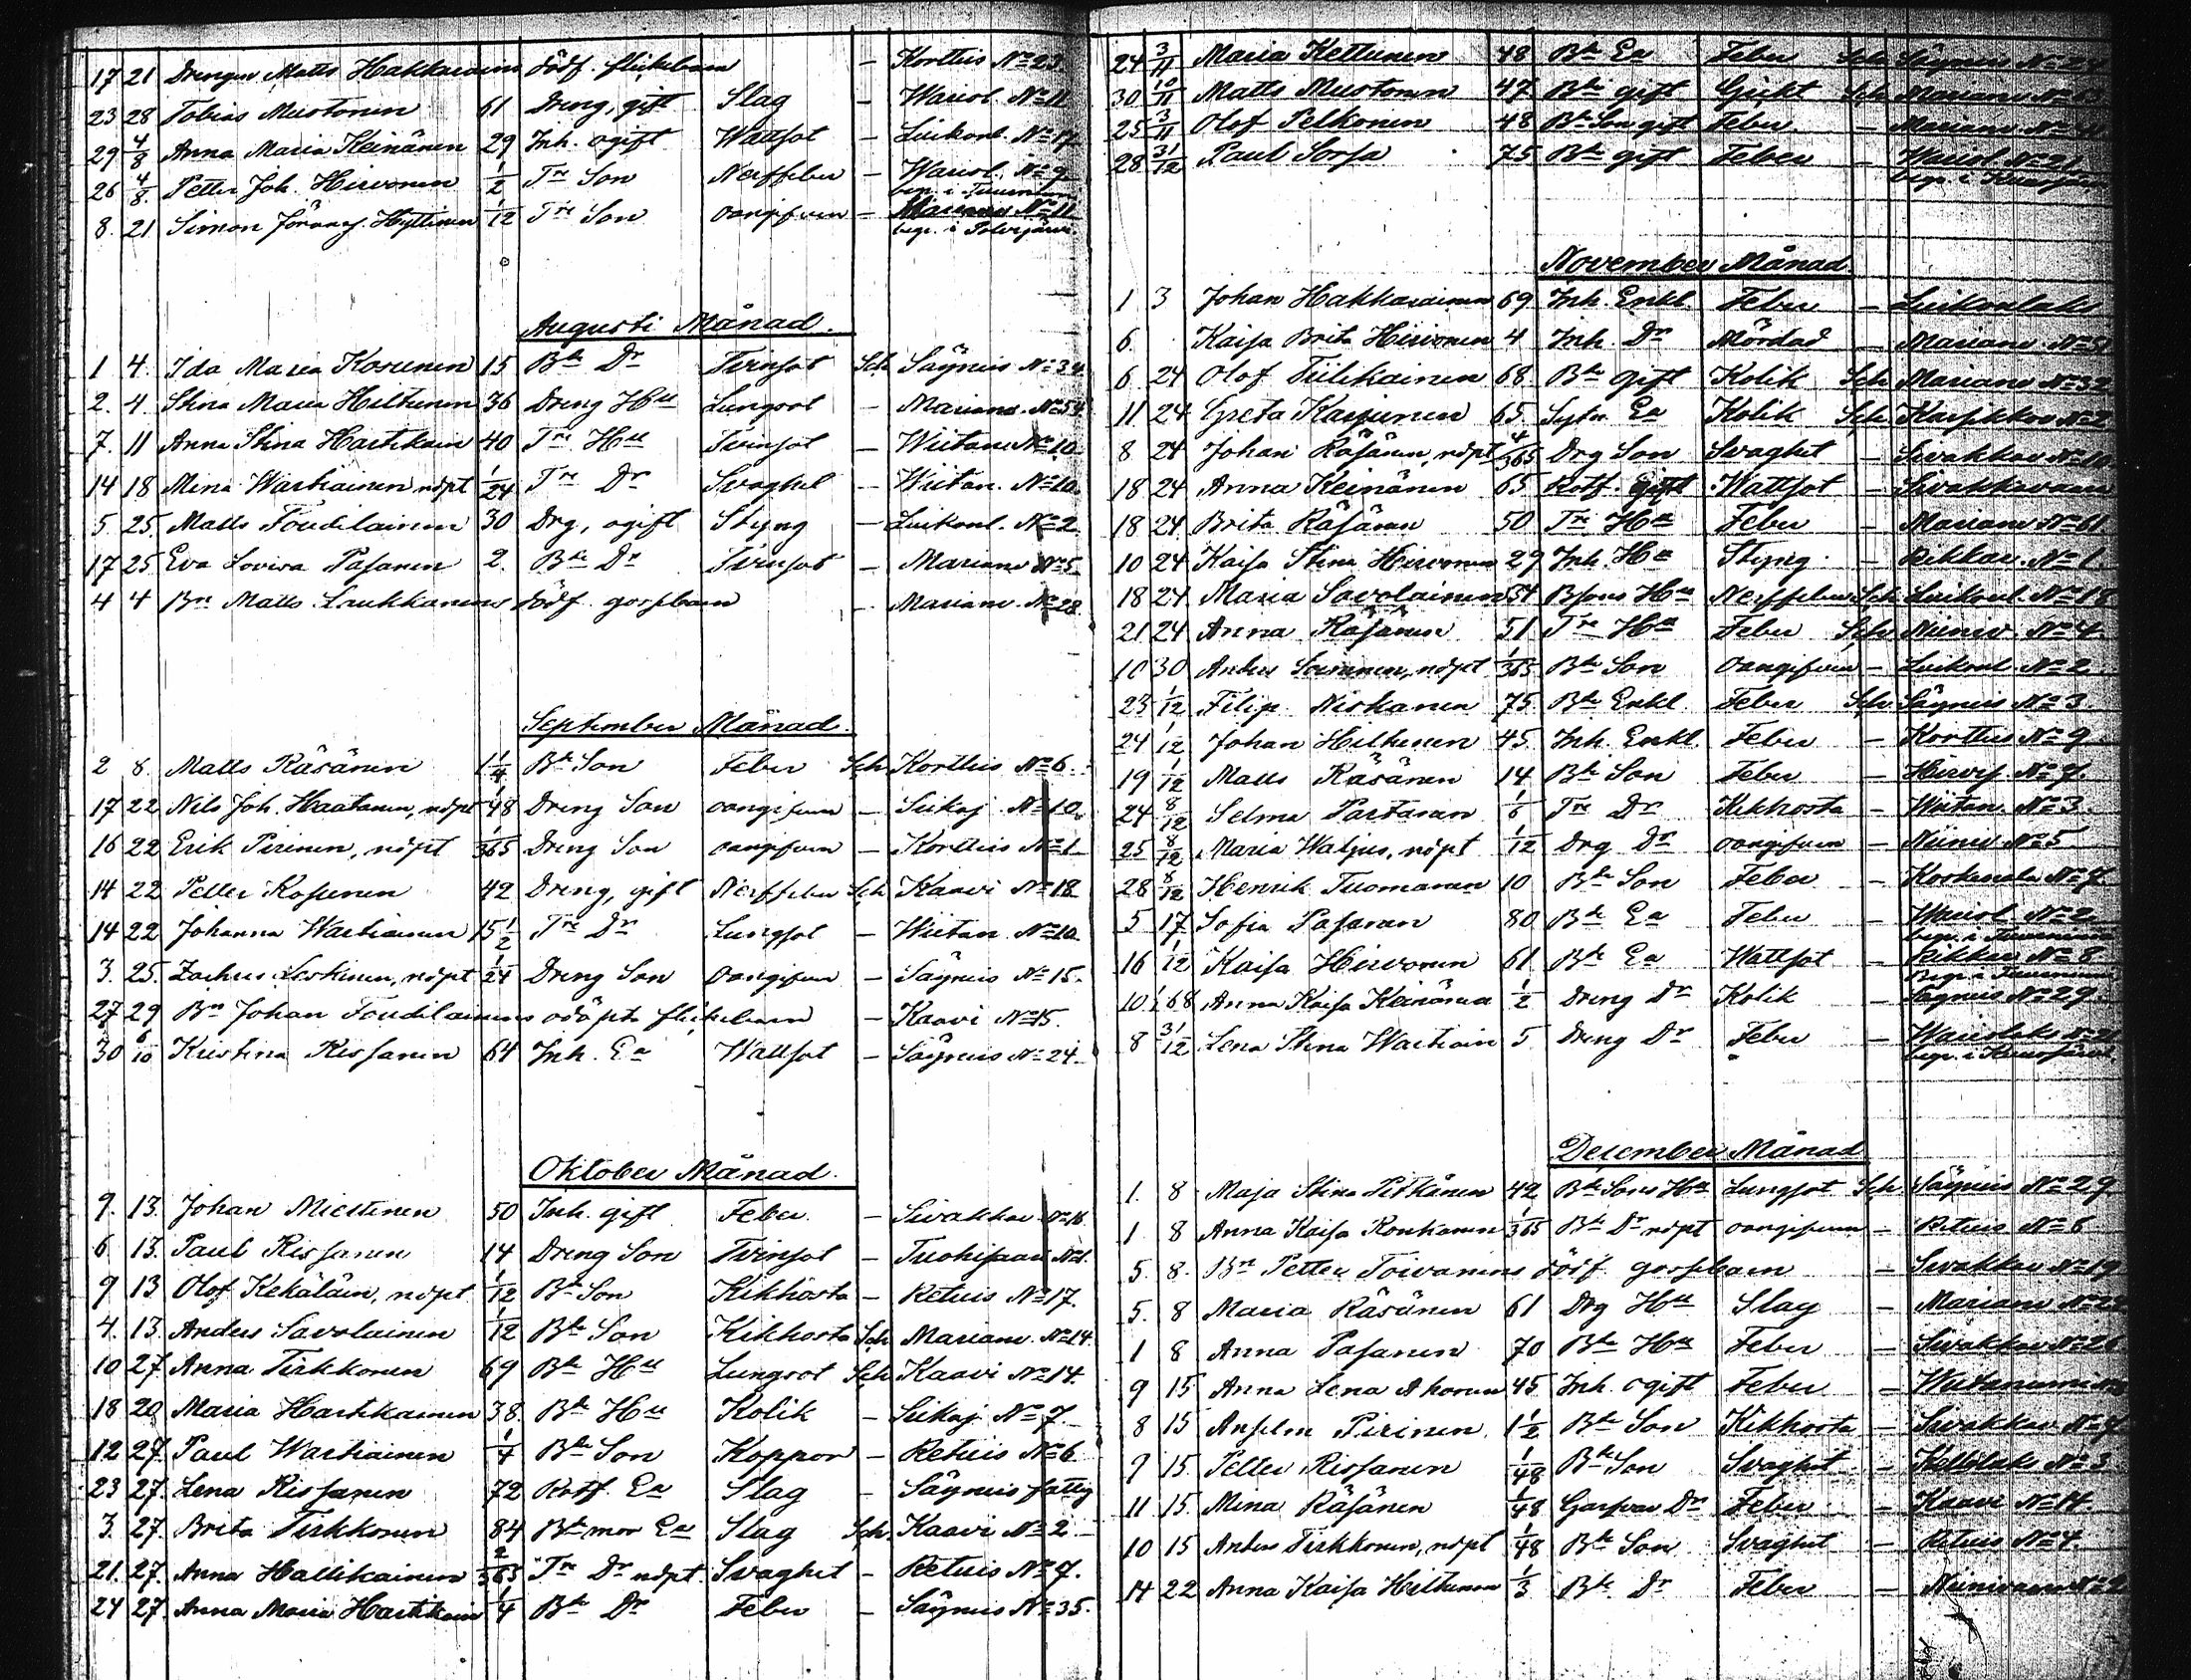 17 21 Drengen Matts Hakkarainens dödf. flickbarn - Korttis No 23.
23 28 Tobias Mustonen 61 Dreng, gift Slag - Wariol. No 11
29 4/8 Anna Maria Keinänen 29 Inh. ogift Wattsot - Luikonl. No 17
26 4/8. Petter Joh. Hirvonen 1/2 Tre Son Nerffeber - Wariol. No 9
begr. i
8. 21 Simon Hyttinen 1/12 Tre Son oangifven - Mariano No 11
begr. i Polvijärvi
Augusti Månad.
1 4. Ida Maria Kosunen 15 Bde Dr Tvinsot Sch Säyneis No 34
2. 4. Stina Maria Hiltunen 36 Dreng Hu Lungsot - Marianv. No 54
7. 11 Anna Stina Hartikain 40 Tre Hu Tvinsot - Wiitan No 10.
14 18 Mina Wartiainen nöpt 1/24 Tre Dr Svaghet - Wiitan. No 10.
5. 25. Matts Toudilainen 30 Drg, ogift Styng - Luikonl. No 2.
17 25 Eva Lovisa Pasanen 2. Bde Dr Tvinsot - Marianv No 5.
4 4 Bn Matts Laukkanens dödf. gossbarn - Marianv. No 28.
September Månad.
2 8. Matts Räsänen 1 1/4 Bde Son Feber Sch Korttis No 6.
17 22 Nils Joh. Haatanen, nöpt 1/48 Dreng Son oangifven - Siikaj. No 10.
16 22 Erik Pirinen, nöpt 1/365 Dreng Son oangifven - Korttis No 1
14 22 Petter Kosunen 42 Dreng, gift Nerffeber Sch Kaavi No 18.
14 22 Johanna Wartiainen 15 1/2 Tre Dr Lungsot - Wiitan No 10
3. 25. Zachris Leskinen, nöpt 1/24 Dreng Son oangifven - Säyneis No 15.
27 29 Bn Johan Toudilainens odöpta flickebarn - Kaavi No 15.
30 6/10 Kristina Rissanen 64 Inh. Ea Wattsot - Säyneis No 24.
Oktober Månad.
9. 13. Johan Miettinen 50 Inh. gift Feber. - Sivakkav No 16.
6 13. Paul Rissanen 14 Dreng Son Tvinsot - Tuohisaari No 1.
9 13 Olof Kekäläin, nöpt 1/12 Bde Son Kikhosta - Retuis No 17.
4. 13. Anders Savolainen 1/12 Bde Son Kikhosta Sch Marianv. No 14.
10 27 Anna Tirkkonen 69 Bde Hu Lungsot Sch Kaavi No 14.
18 20 Maria Hartikainen 38. Bde Hu Kolik - Siikaj. No 7
12 27. Paul Wartiainen 1/4 Bde Son Koppor - Retuis No 6
23 27. Lena Rissanen 72 Rotf. Ea Slag - Säyneis fattig
3. 27. Brita Tirkkonen 84 Bde mor Ea Slag Sch. Kaavi No 2
21. 27. Anna Hallikainen 2/365 Tre Dr nöpt. Svaghet - Retuis No 7.
24 27 Anna Maria Hartikain 1/4 Bde Dr Feber - Säyneis No 35.
24 3/11 Maria Kettunen 48 Bde Ea Feber Sch Säyneis
30 10/11 Matts Mustonen 47 Bde gift Gickt Sch Marianv
25 3/11 Olof Pelkonen 48 Bde Son gift Feber. - Marianv
28 31/12 Paul Sorsa 75 Bde gift Feber - Wariol No 21
begr. i
November Månad.
1 3 Johan Hakkarainen 69 Inh. Enkl. Feber - Luikonlaks
6. Kaisa Brita Hirvonen 4 Inh. Dr Mördad - Marianv. No 51
6 24 Olof Tiilikainen 68. Bde gift Kolik Sch Marianv No 32
11 24 Greta Karjunen 65. Ea Kolik Sch No 2
8 24 Johan Räsänen, nöpt 4/365 Drg Son Svaghet - Sivakkav
18 24 Anna Keinänen 65 Rotf. gift Wattsot - Sivakkavaara
18 24 Brita Räsänen 50 Tre Hu Feber - Marianv No 61
10 24 Kaisa Stina Hirvonen 29 Inh. Hu Styng. - Rikkav. No 1.
18 24 Maria Savolainen 54 Bsons Hu Nerffeber Sch Luikonl. No 18
21 24 Anna Räsänen 51 Tre Hu Feber Sch Niiniv. No 4.
10 30 Anders Soininen, nöpt 1/365 Bde Son oangifven - Luikonl. No 2
23 1/12 Filip Niskanen 75. Bde Enkl. Feber Sch Säyneis No 3.
24 1/12 Johan Hiltunen 45. Inh. Enkl. Feber - Korttis No 9
19 1/12 Matts Räsänen 14 Bde Son Feber - Hirvis. No 7.
24 8/12 Selma Partanen 1/6 Tre Dr Kikhosta - Wiitan. No 3.
25 8/12 Maria Waljus, nöpt 1/12 Drg Dr oangifven - Niiniv No 5
28 8/12 Henrik Tuomanen 10 Bde Son Feber - No 7.
5 17 Sofia Pasanen 80 Bde Ea Feber - Wariol No 2.
begr. i
16 1/12 Kaisa Hirvonen 61 Bde Ea Wattsot - Rikkav No 8.
Begr. i
10 1/1 68 Anna Kaisa Keinänen 1/2 Dreng Dr Kolik - Säyneis No 29.
8 31/12 Lena Stina Wartiain 5 Dreng Dr Feber - Warislaks
begr. i
December Månad
1. 8 Maja Stina Pitkänen 42 Bde Sons Hu Lungsot Sch. Säyneis No 29
1 8 Anna Kaisa Ronkanen 1/365 Bde Dr nöpt oangifven - Retuis No 6
5. 8. Bn Petter Toivanens dödf. gossbarn - Sivakkav No 19
5. 8 Maria Räsänen 61 Drg Hu Slag - Marianv No 22
1 8 Anna Pasanen 70 Bde Hu Feber - Sivakkav No 26
9 15 Anna Lena Ahonen 45. Inh. ogift Feber -
8 15 Anselm Pirinen. 1 1/2 Bde Son Kikhosta - Sivakkav No 7
9 15. Petter Rissanen 1/48 Bde Son Svaghet - No 3
11 15. Mina Räsänen 1/48 Dr Feber - Kaavi No 14.
10 15 Anders Tirkkonen, nöpt 1/48 Bde Son Svaghet - Retuis No 4.
14 22 Anna Kaisa Hiltunen 1/3 Bde Dr Feber - Niinivaara No 2